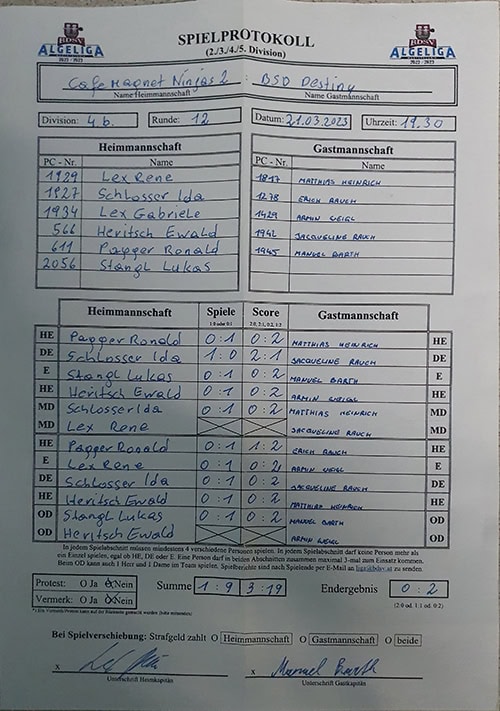 BDSV
ALGELIGA
2022 - 2023
SPIELPROTOKOLL
(2./3./4./5. Division)
BDSV
ALGELIGA
2022 - 2023
Cafe Magnet Ninjas 2 : BSD Destiny
Name Heimmannschaft Name Gastmannschaft
Division: 4 b. Runde: 12 Datum: 21.03.2023 Uhrzeit: 19.30
Heimmannschaft Gastmannschaft
PC - Nr. Name PC - Nr. Name
1929 Lex Rene 1817 MATTHIAS HEINRICH
1927 Schlosser Ida 1278 ERICH RAUCH
1934 Lex Gabriele 1429 ARMIN WEIGL
566 Heritsch Ewald 1942 JACQUELINE RAUCH
611 Pagger Ronald 1945 MANUEL BARTH
2056 Stangl Lukas
Heimmannschaft Spiele Score Gastmannschaft
1:0 oder 0:1 2:0, 2:1, 0:2, 1:2
HE Pagger Ronald 0:1 0:2 MATTHIAS HEINRICH HE
DE Schlosser Ida 1:0 2:1 JACQUELINE RAUCH DE
E Stangl Lukas 0:1 0:2 MANUEL BARTH E
HE Heritsch Ewald 0:1 0:2 ARMIN WEIGL HE
MD Schlosser Ida 0:1 0:2 MATTHIAS HEINRICH MD
MD Lex Rene JACQUELINE RAUCH MD
HE Pagger Ronald 0:1 1:2 ERICH RAUCH HE
E Lex Rene 0:1 0:2 ARMIN WEIGL E
DE Schlosser Ida 0:1 0:2 JACQUELINE RAUCH DE
HE Heritsch Ewald 0:1 0:2 MATTHIAS HEINRICH HE
OD Stangl Lukas 0:1 0:2 MANUEL BARTH OD
OD Heritsch Ewald ARMIN WEIGL OD
In jedem Spielabschnitt müssen mindestens 4 verschiedene Personen spielen. In jedem Spielabschnitt darf keine Person mehr als
ein Einzel spielen, egal ob HE, DE oder E. Eine Person darf in beiden Abschnitten zusammen maximal 3-mal zum Einsatz kommen.
Beim OD kann auch 1 Herr und 1 Dame im Team spielen. Spielberichte sind nach Spielende per E-Mail an liga@bdsv.at zu senden.
Protest: O Ja O Nein Summe 1 : 9 3 : 19 Endergebnis 0 : 2
Vermerk: O Ja O Nein (2:0 od. 1:1 od. 0:2)
Bei Spielverschiebung: Strafgeld zahlt O Heimmannschaft O Gastmannschaft O beide
x x Manuel Barth
Unterschrift Heimkapitän Unterschrift Gastkapitän